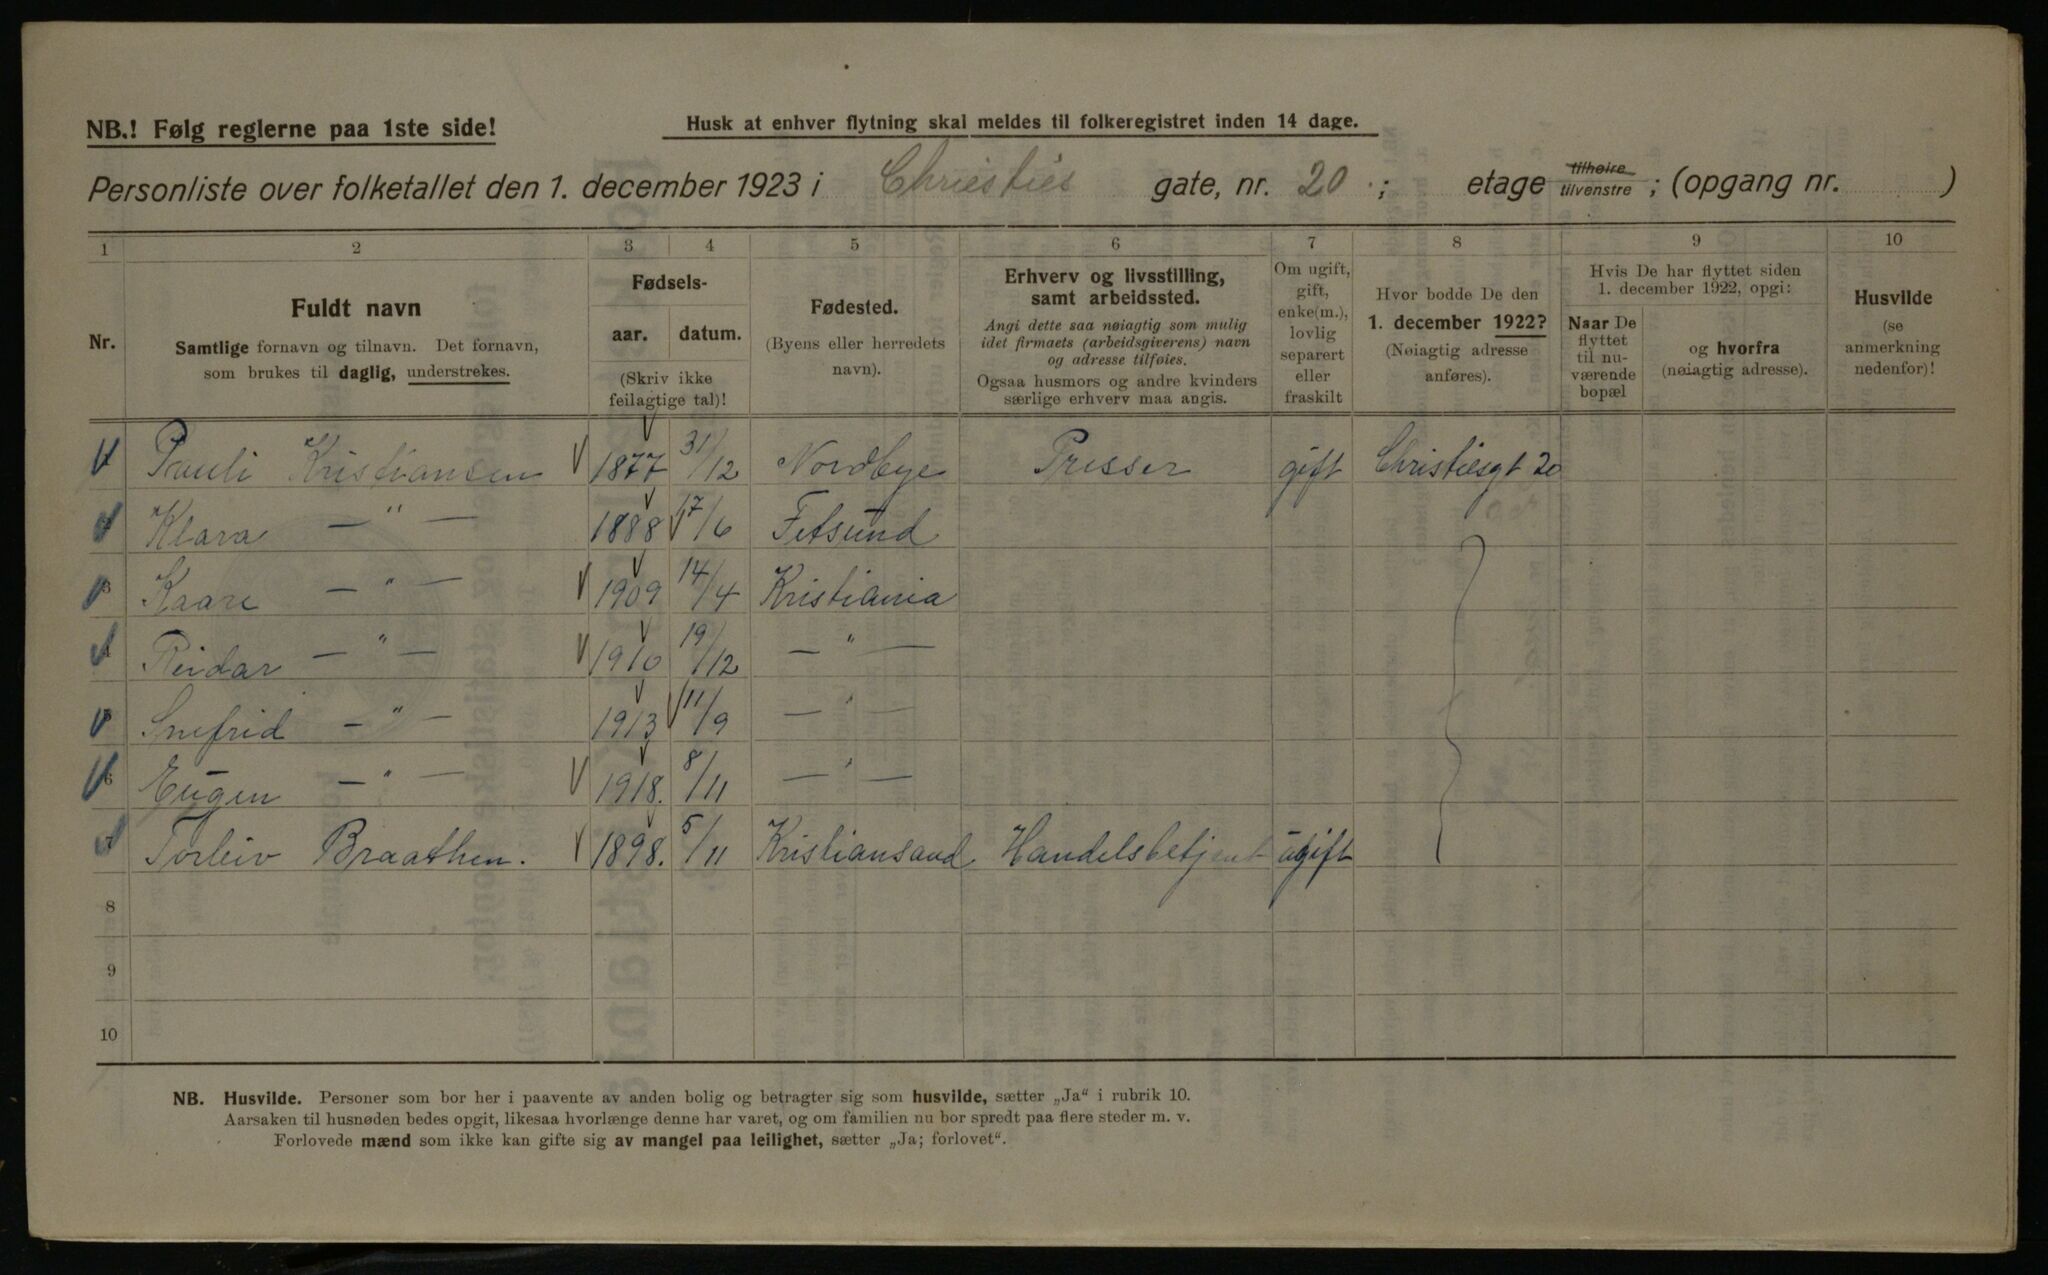 NB.! Følg reglerne paa 1ste side!
Husk at enhver flytning skal meldes til folkeregistret inden 14 dage.
Personliste over folketallet den 1. december 1923 i Christies gate, nr. 20 ; etage tilhøire tilvenstre ; (opgang nr. )
1 2 3 4 5 6 7 8 9 10
Nr.
Fuldt navn
Samtlige fornavn og tilnavn. Det fornavn,
som brukes til daglig, understrekes.
Fødsels-
aar. datum.
(Skriv ikke
feilagtige tal)!
Fødested.
(Byens eller herredets
navn).
Erhverv og livsstilling,
samt arbeidssted.
Angi dette saa nøiagtig som mulig
idet firmaets (arbeidsgiverens) navn
og adresse tilføies.
Ogsaa husmors og andre kvinders
særlige erhverv maa angis.
Om ugift,
gift,
enke(m.),
lovlig
separert
eller
fraskilt
Hvor bodde De den
1. december 1922?
(Nøiagtig adresse
anføres).
Hvis De har flyttet siden
1. december 1922, opgi:
Naar De
flyttet
til nu-
værende
bopæl
og hvorfra
(nøiagtig adresse).
Husvilde
(se
anmerkning
nedenfor)!
Pauli Kristiansen 1877 31/12 Nordbye Presser gift Christiesgt 20
Klara — " — 1888 17/6 Fetsund
3 Kaare — " — 1909 14/4 Kristiania
Reidar — " — 1910 19/12 — " —
Snefrid — " — 1913 11/9 — " —
6 Eugen — " — 1918. 8/11 — " —
7 Torleiv Braathen. 1898. 5/11 Kristiansand Handelsbetjent ugift
8
9
10
NB. Husvilde. Personer som bor her i paavente av anden bolig og betragter sig som husvilde, sætter „Ja“ i rubrik 10.
Aarsaken til husnøden bedes opgit, likesaa hvorlænge denne har varet, og om familien nu bor spredt paa flere steder m. v.
Forlovede mænd som ikke kan gifte sig av mangel paa leilighet, sætter „Ja; forlovet“.